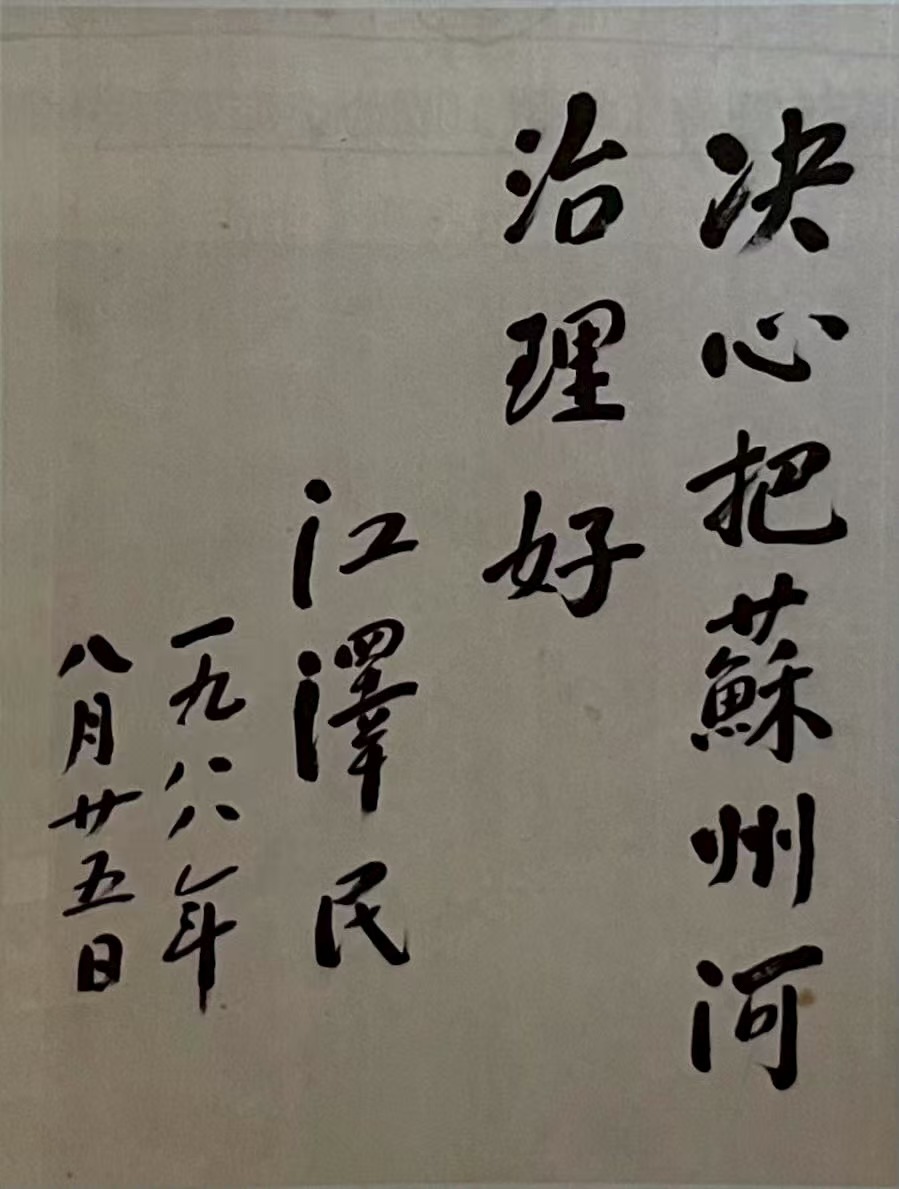 决心把蘇州河
治理好
江澤民
一九八八年
八月廿五日